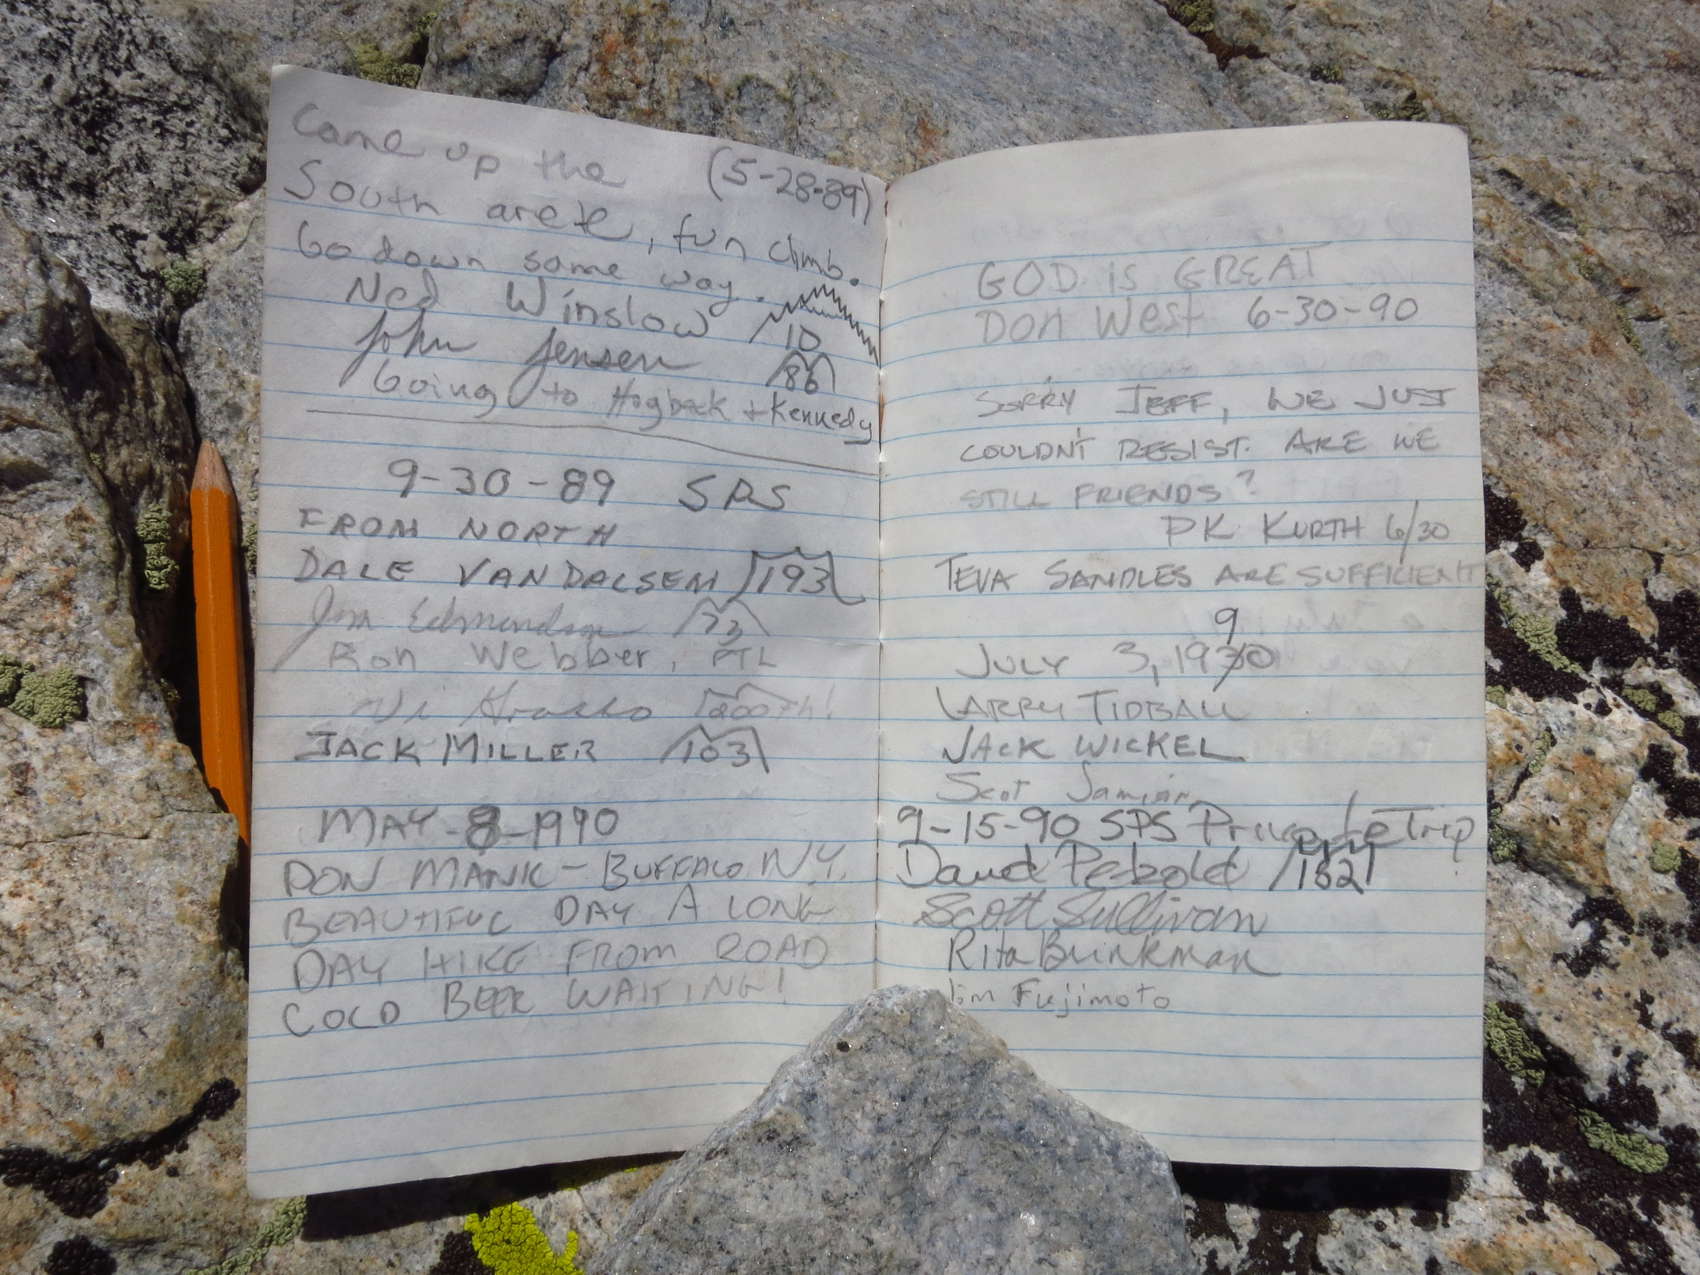 Came up the (5-28-89)
South arete, fun climb.
Go down same way.
Ned Winslow 10
John Jensen 86
Going to Hogback + Kennedy
9-30-89 SPS
FROM NORTH
DALE VAN DALSEM 193
Jim Edmondson 73
Ron Webber, PTL
200th!
JACK MILLER 103
MAY-8-1990
DON MANK - BUFFALO N.Y.
BEAUTIFUL DAY A LONG
DAY HIKE FROM ROAD
COLD BEER WAITING!
GOD is GREAT
DON West 6-30-90
SORRY JEFF, WE JUST
COULDN'T RESIST. ARE WE
STILL FRIENDS?
PK KURTH 6/30
TEVA SANDLES ARE SUFFICIENT
9
JULY 3, 1930
LARRY TIDBALL
JACK WICKEL
Scot Jamison
9-15-90 SPS Private Trip
David Petzold 132
Scott Sullivan
Rita Brinkman
Jim Fujimoto